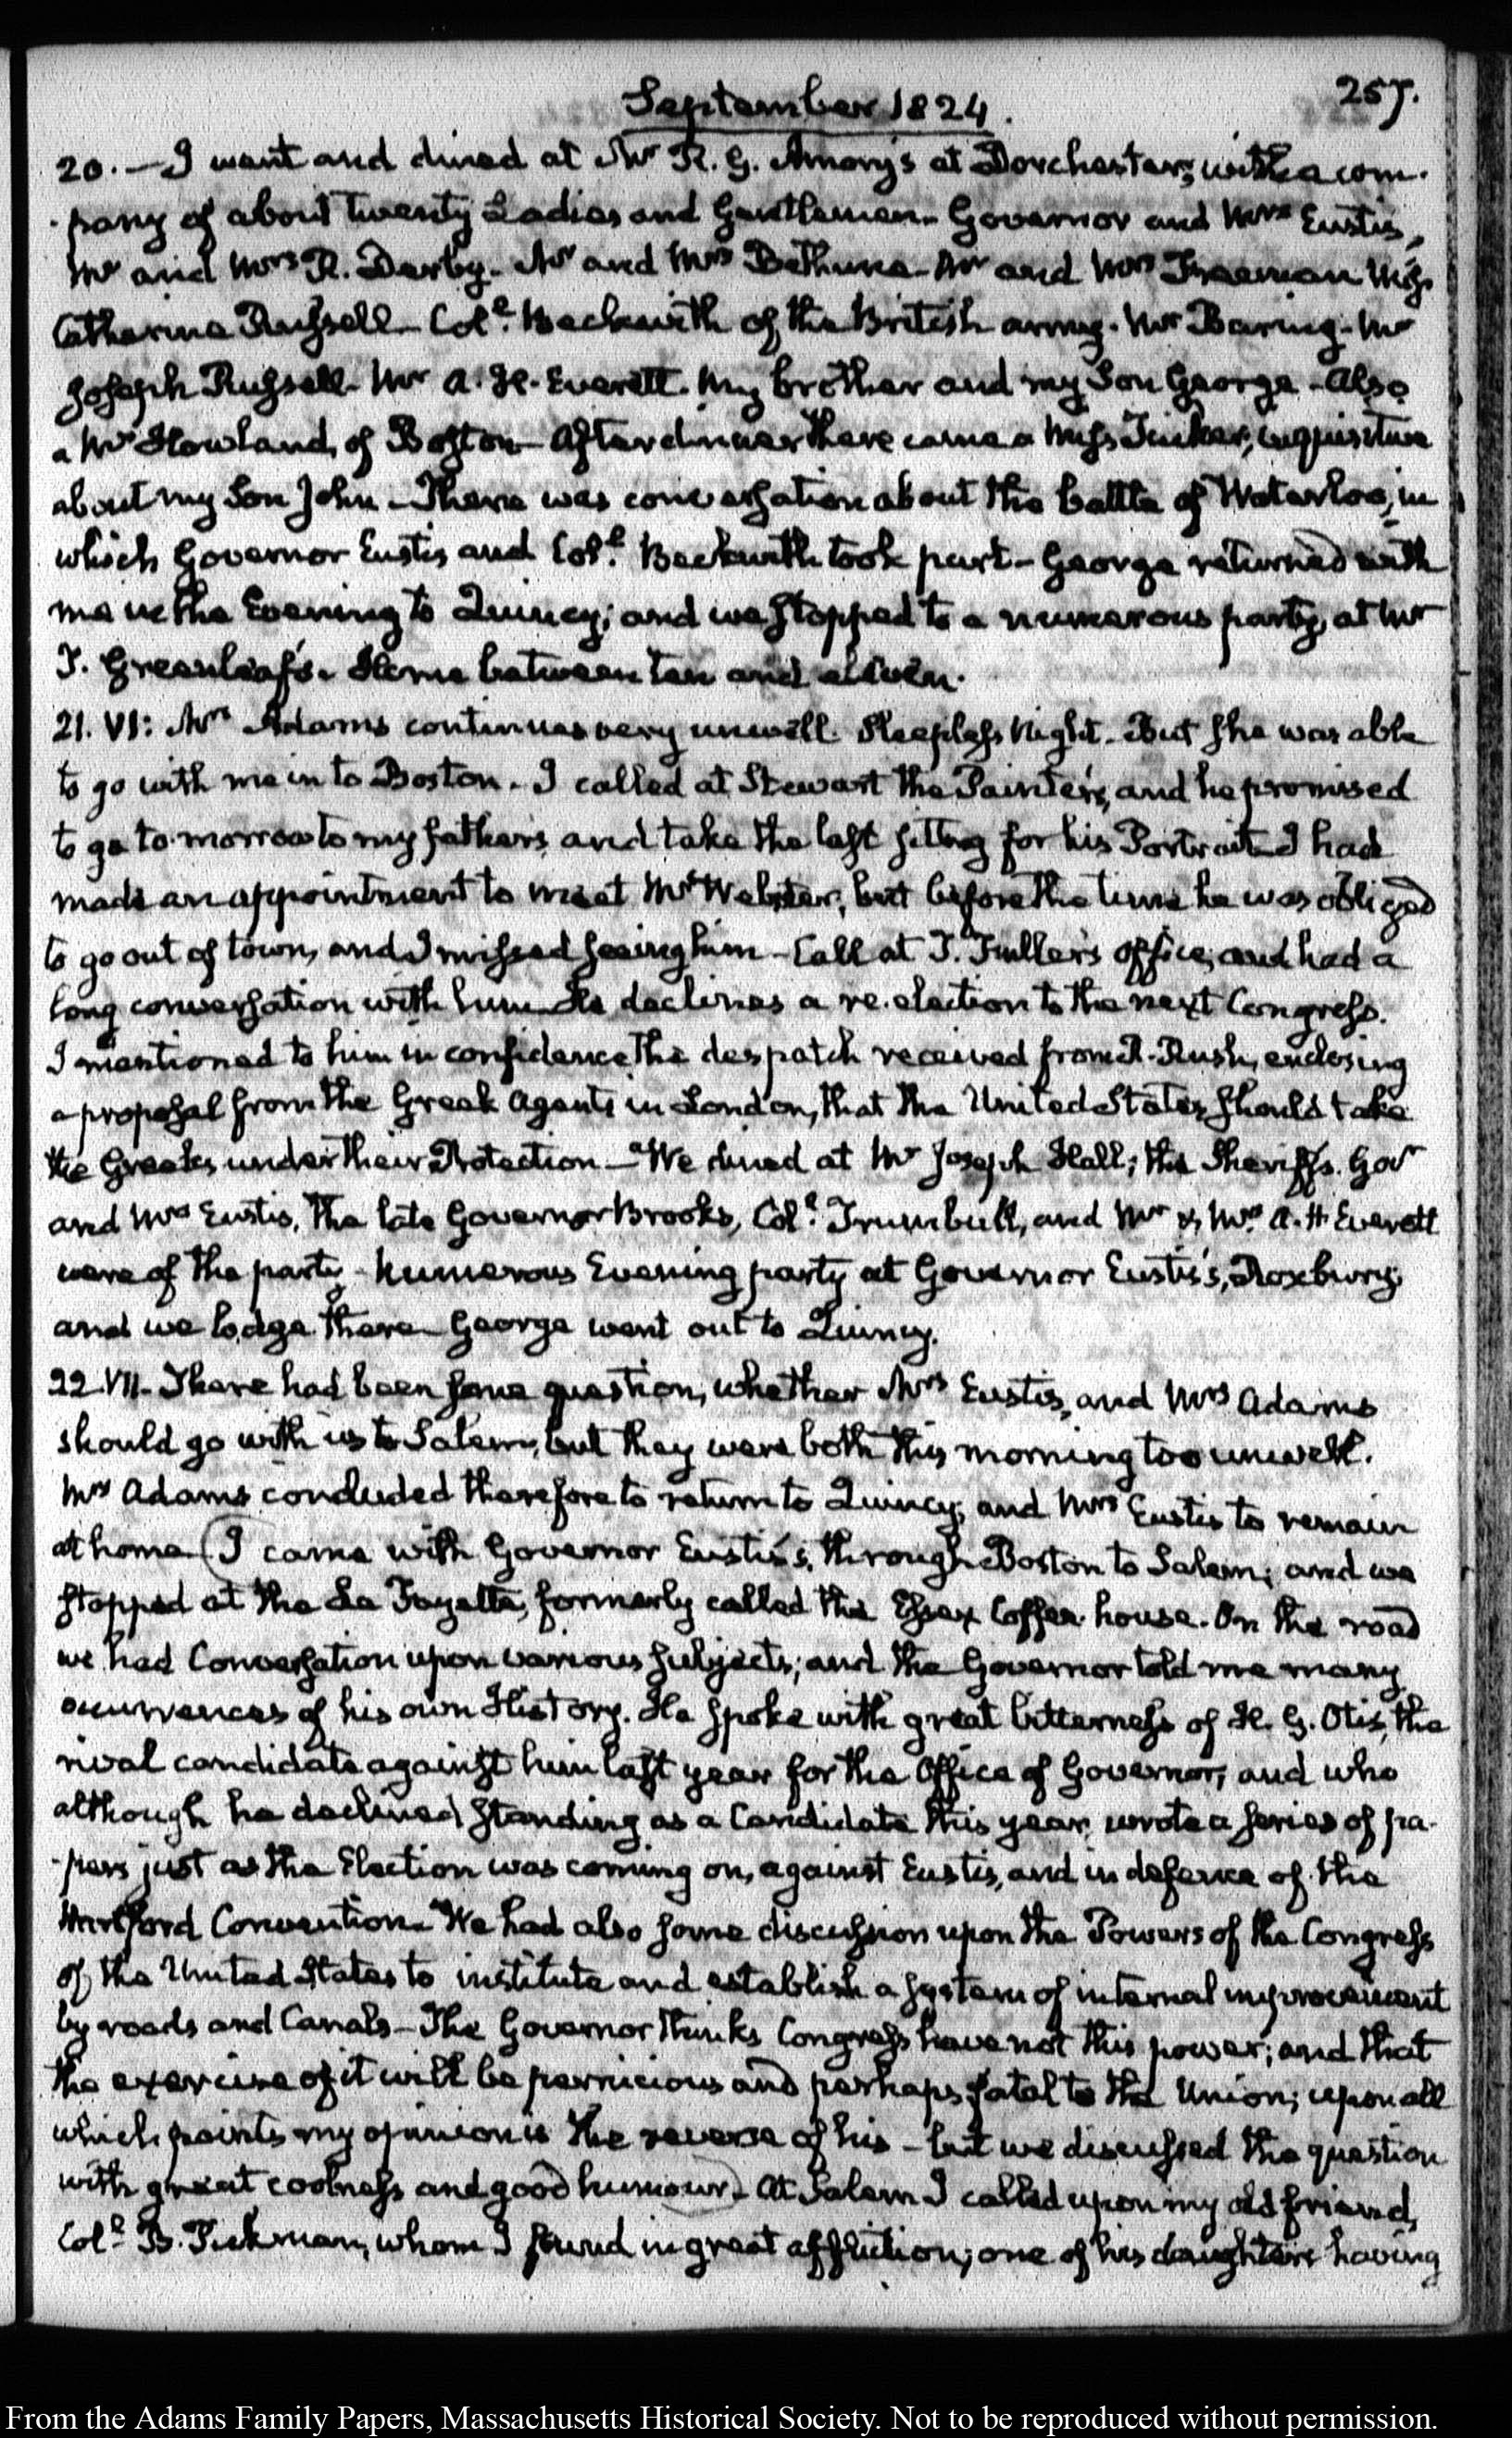 September 1824.
257.
20. — I went and dined at Mr R. G. Amory's at Dorchester; with a com-
-pany of about twenty Ladies and Gentlemen. Governor and Mrs Eustis,
Mr and Mrs R. Derby. Mr and Mrs Bethune. Mr and Mrs Freeman Miss
Catherine Russell. Coll. Beckwith of the British army. Mr Baring. Mr
Joseph Russell. Mr A. H. Everett. My brother and my Son George. Also
a Mr Howland, of Boston. After dinner there came a Miss Tucker, inquisitive
about my Son John. There was conversation about the battle of Waterloo, in
which Governor Eustis and Coll. Beckwith took part. George returned with
me in the Evening to Quincy; and we stopped to a numerous party, at Mr
T. Greenleaf's. Home between ten and eleven.
21. VI: Mrs Adams continues very unwell. Sleepless Night. But she was able
to go with me in to Boston. I called at Stewart the Painter's, and he promised
to go to-morrow to my father's, and take the last sitting for his Portrait. I had
made an appointment to meet Mr Webster, but before the time he was obliged
to go out of town, and I missed seeing him. Call at T. Fuller's office, and had a
long conversation with him. He declines a re-election to the next Congress.
I mentioned to him in confidence the despatch received from R. Rush, enclosing
a proposal from the Greek Agents in London, that the United States should take
the Greeks under their Protection — We dined at Mr Joseph Hall; the Sheriff's. Govr
and Mrs Eustis, the late Governor Brooks, Coll. Trumbull, and Mr & Mrs A. H. Everett
were of the party. Numerous Evening party at Governor Eustis's, Roxbury;
and we lodge there. George went out to Quincy.
22. VII. There had been some question, whether Mrs Eustis, and Mrs Adams
should go with us to Salem, but they were both this morning too unwell.
Mrs Adams concluded therefore to return to Quincy, and Mrs Eustis to remain
at home. (I came with Governor Eustis's, through Boston to Salem; and we
stopped at the La Fayette, formerly called the Essex Coffee-house. On the road
we had Conversation upon various subjects; and the Governor told me many
occurrences of his own History. He spoke with great bitterness of H. G. Otis, the
rival candidate against him last year for the Office of Governor; and who
although he declined standing as a Candidate this year, wrote a series of pa-
-pers just as the Election was coming on, against Eustis, and in defence of the
Hartford Convention. We had also some discussion upon the Powers of the Congress
of the United States to institute and establish a system of internal improvement
by roads and Canals — The Governor thinks Congress have not this power; and that
the exercise of it will be pernicious and perhaps fatal to the Union; upon all
which points my opinion is the reverse of his — but we discussed the question
with great coolness and good humour). At Salem I called upon my old friend,
Coll. B. Pickman, whom I found in great affliction; one of his daughters having
From the Adams Family Papers, Massachusetts Historical Society. Not to be reproduced without permission.